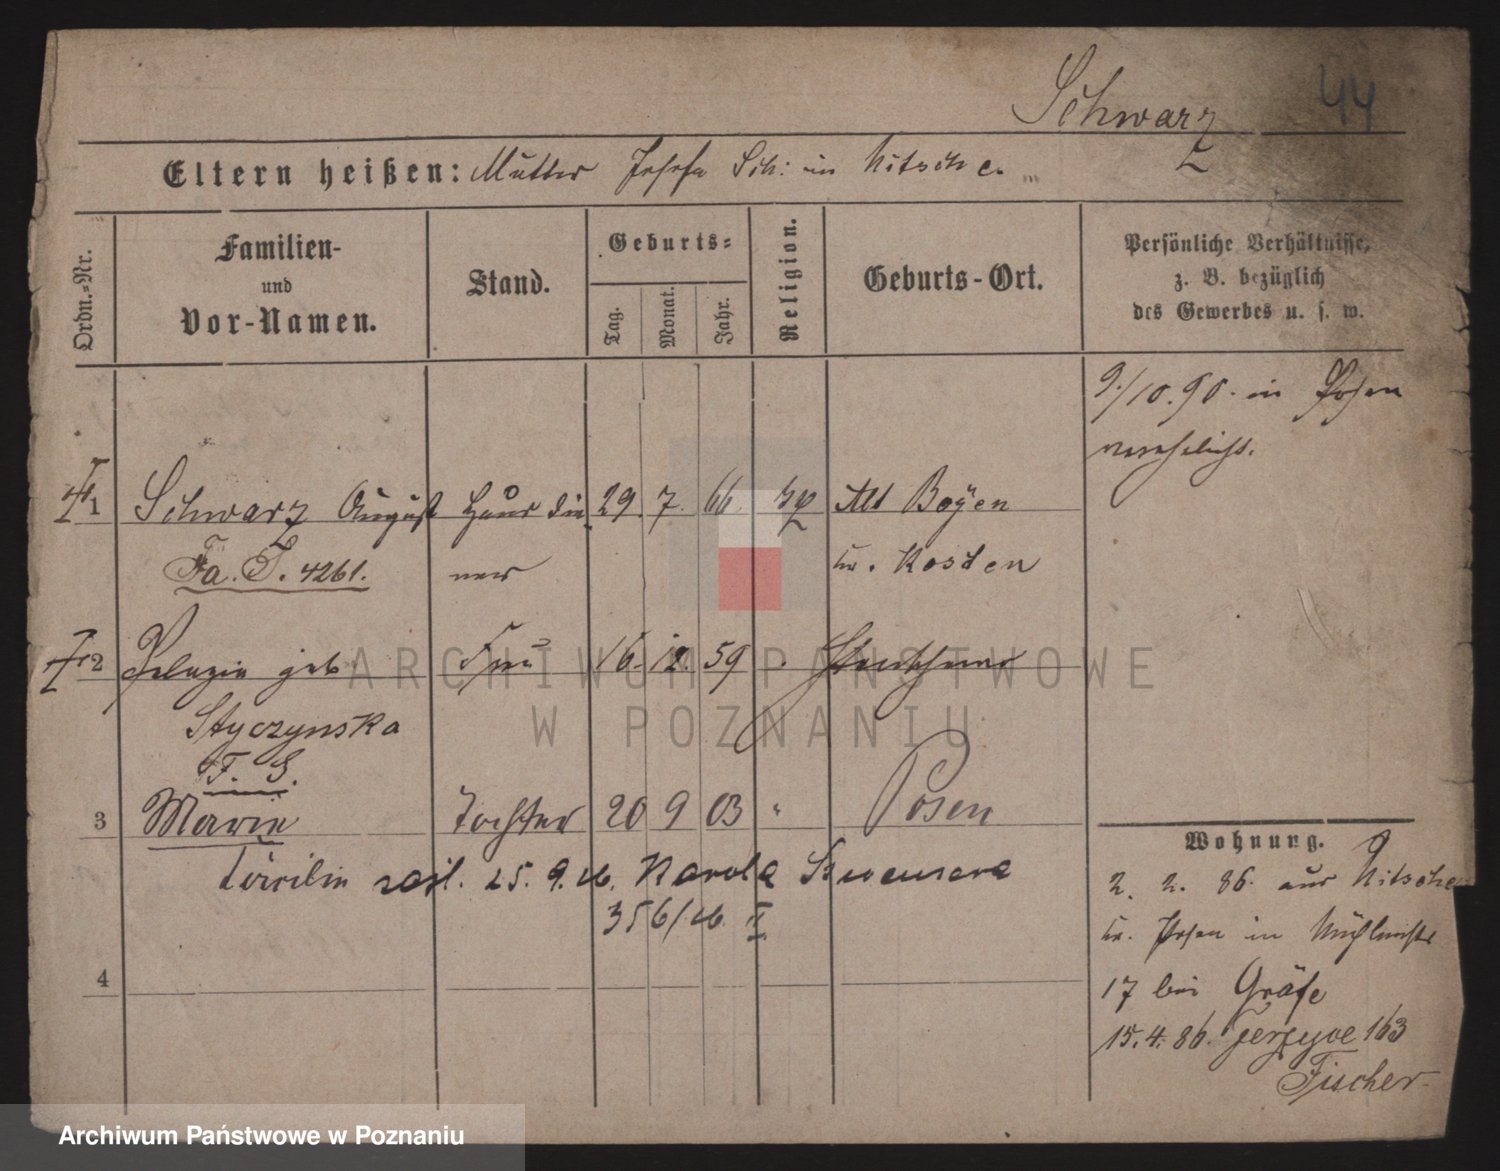 44
Schwarz
Eltern heißen: Mutter Josefa Sch: in Nitsche.
Ordn.-Nr.
Familien-
und
Vor-Namen.
Stand.
Geburts-
Tag. Monat. Jahr.
Religion.
Geburts-Ort.
Persönliche Verhältnisse,
z. B. bezüglich
des Gewerbes u. s. w.
9./10. 90. in Posen
verehelicht.
1 Schwarz August Haus die 29. 7. 66. Alt Boyen
Fa. S. 4261. ner Kr. Kosten
2 Pelagia geb. Frau 16. 12. 59
Styczynska
F. S.
3 Marie Tochter 20 9 03 " Posen
Cäcilie 25. 9. Karola
356/ II
4
Wohnung.
2. 2. 86. aus Nitsche
Kr. Posen in Mühlenstr
17 bei Gräfe
15. 4. 86. Jerzyce 163
Fischer
ARCHIWUM PAŃSTWOWE
W POZNANIU
Archiwum Państwowe w Poznaniu